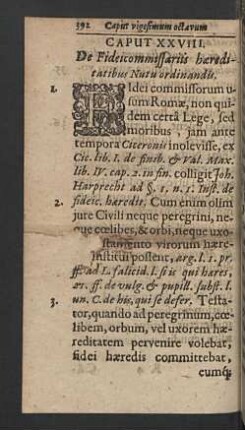 392 Caput vigesimum octavum
CAPUT XXVIII.
De Fideicommissariis hæredi-
tatibus Nutu ordinandis.
1. FIdei commissorum u-
sum Romæ, non qui-
dem certâ Lege, sed
moribus, jam ante
tempora Ciceronis inolevisse, ex
Cic. lib. I. de finib. & Val. Max.
lib. IV. cap. 2. in fin. colligit Joh.
Harprecht ad §. 1. n. 1. Inst. de
fideic. hæredit. Cum enum olim
2. jure Civili neque peregrini, ne-
que cœlibes, & orbi, neque uxo-
stamento virorum hære-
institui possent, arg. l. 1. pr.
ff. ad L. falicid. l. si is qui hæres,
ff. de vulg. & pupill. subst. l.
un. C. de his, qui se defer. Testa-
3. tor, quando ad peregrinum, cœ-
libem, orbum, vel uxorem hæ-
reditatem pervenire volebat,
fidei hædis committebat,
cumq;